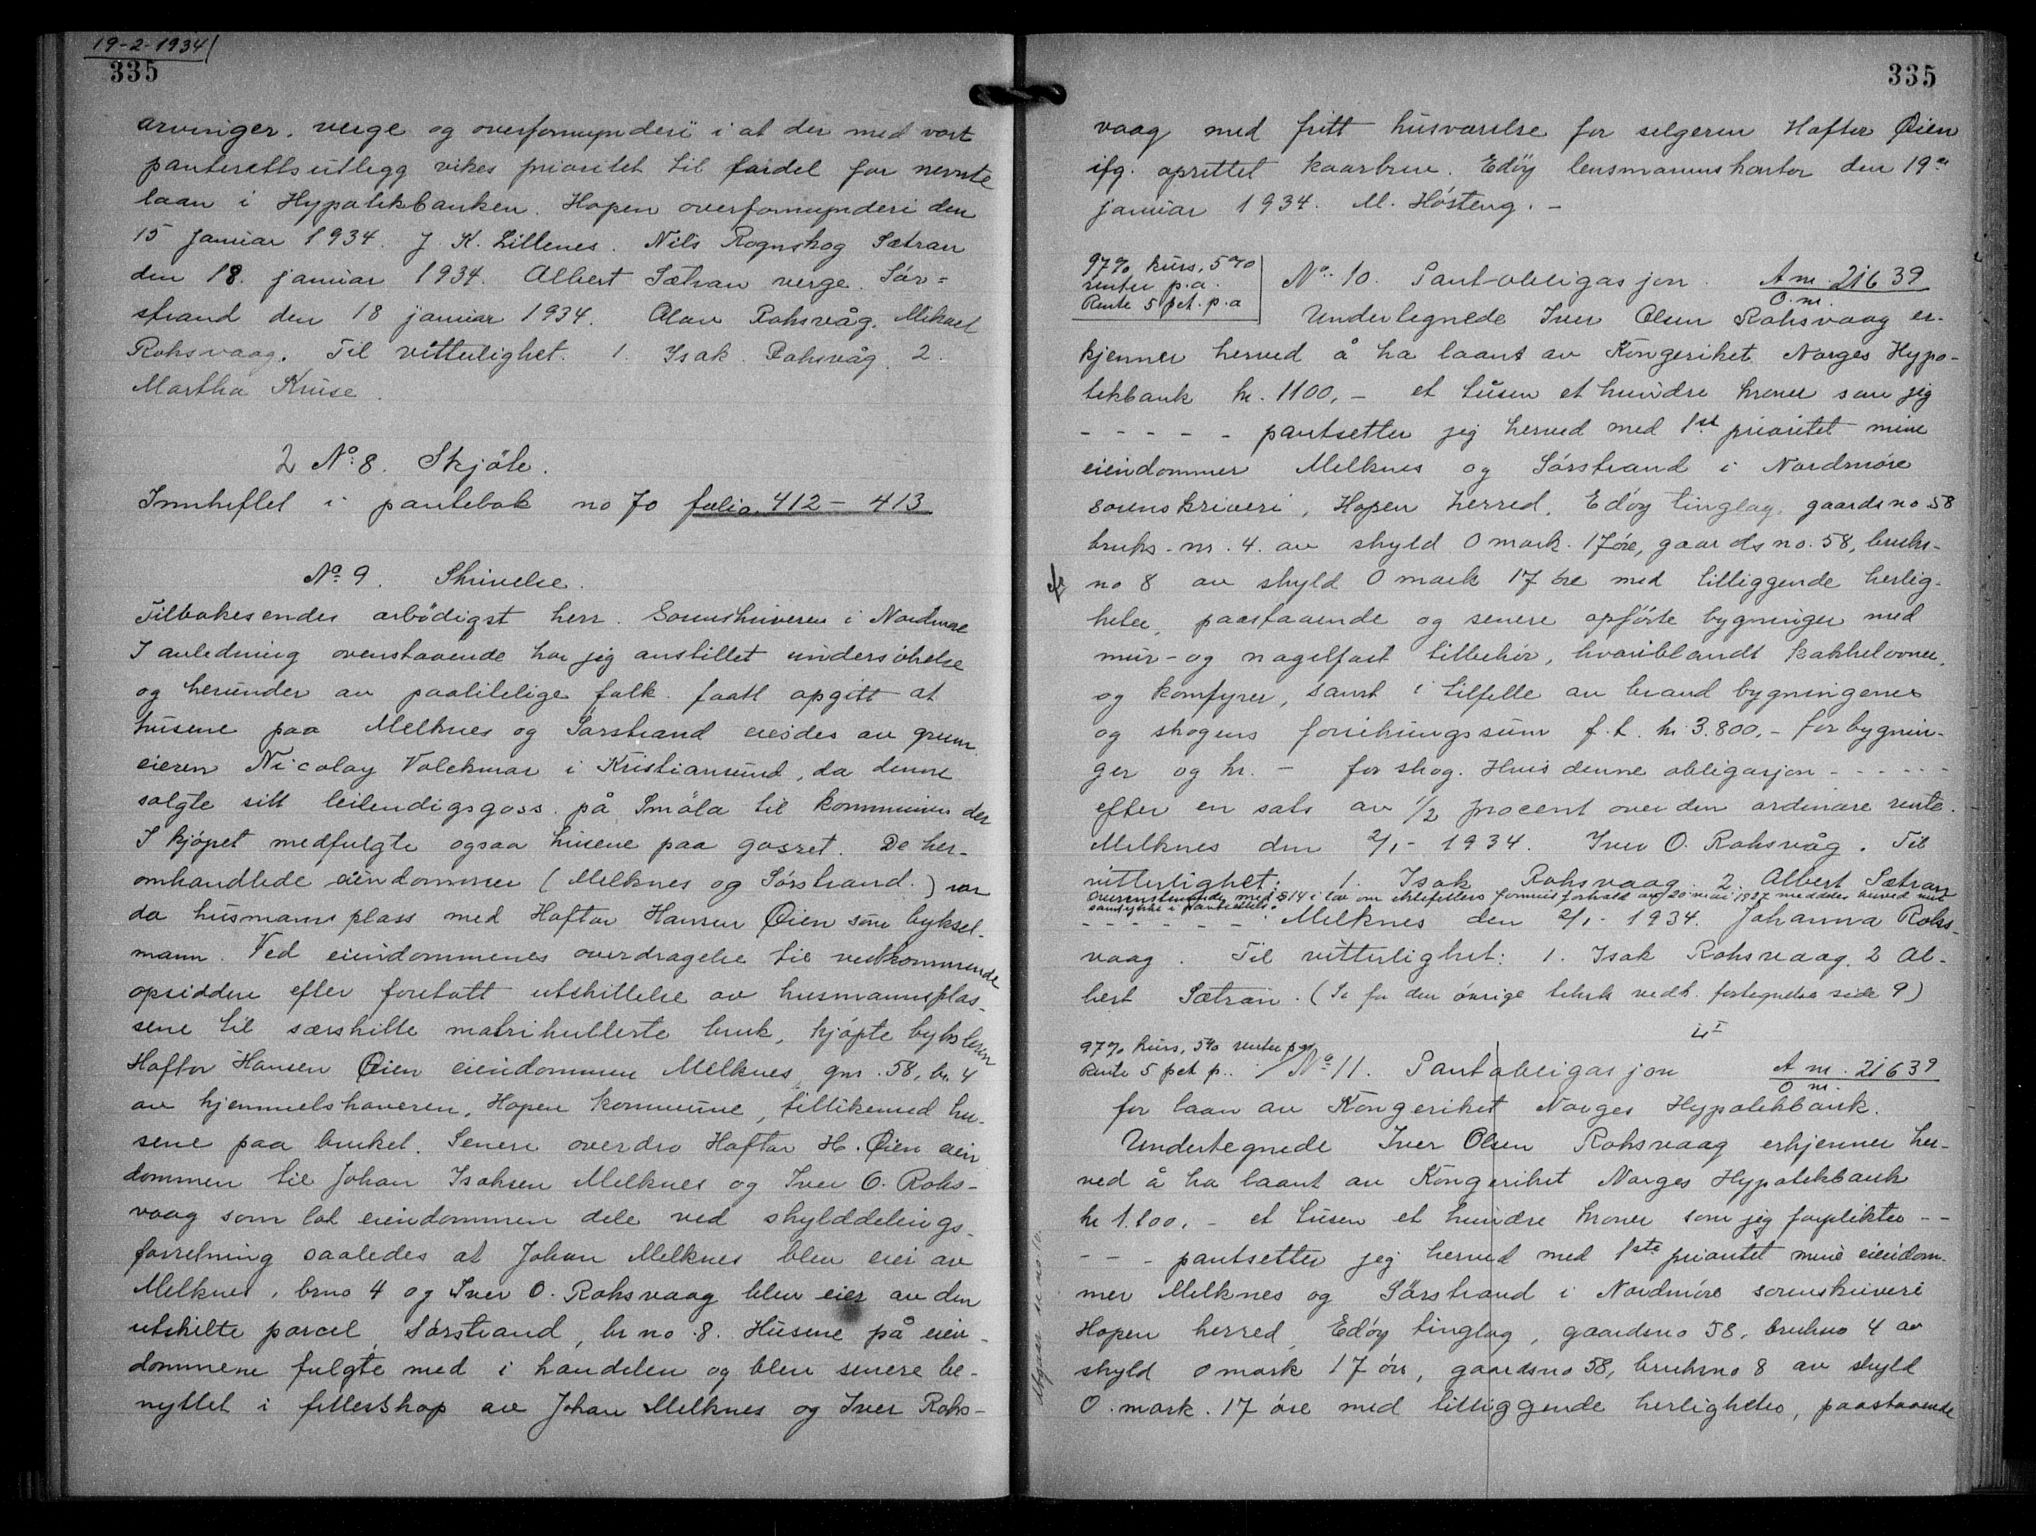 19-2-1934
335
arvinger, verge og overformynderi i at der med vort
panterettsutlegg vikes prioritet til fordel for nevnte
laan i Hypotekbanken. Hopen overformynderi den
15 januar 1934. J. K. Lillenes. Nils Rognskog Sætran
den 18. januar 1934. Albert Sætran verge. Sør=
strand den 18 januar 1934. Olav Rohsvåg. Mikael
Rohsvaag. Til vitterlighet. 1. Isak Rohsvåg 2.
Martha Kruse.
2 No. 8. Skjöte.
Innheftet i pantebok no 70 folio 412 - 413
No. 9. Skrivelse.
Tilbakesendes arbödigst herr. Sorenskriveren i Nordmøre
I anledning ovenstaaende har jeg anstillet undersökelse
og herunder av paalitelige folk faatt opgitt at
husene paa Melknes og Sørstrand eiedes av grunn
eieren Nicolay Volckmar i Kristiansund, da denne
solgte sitt leilendigsgoss på Smöla til kommunen der
I kjöpet medfulgte ogsaa husene paa gosset. De her-
omhandlede eiendommer (Melknes og Sörstrand.) var
da husmannsplass med Haftor Hansen Øien som byksel-
mann. Ved eiendommenes overdragelse til vedkommende
opsiddere efter foretatt utskillelse av husmannsplas-
sene til særskilte matrikullerte bruk, kjöpte bykseleren
Haftor Hansen Øien eiendommen Melknes, gnr. 58, br. 4
av hjemmelshaveren, Hopen kommune, tillikemed hu-
sene paa bruket. Senere overdro Haftor H. Øien eien
dommen til Johan Isaksen Melknes og Iver O. Rohs-
vaag som lot eiendommen dele ved skylddelings-
forretning saaledes at Johan Melknes blev eier av
Melknes, brno 4 og Iver O. Rohsvaag blev eier av den
utskilte parcel, Sörstrand, br no. 8. Husene på eien-
dommene fulgte med i handelen og blev senere be-
nyttet i fellesskap av Johan Melknes og Iver Rohs-
335
vaag med fritt husværelse for selgeren Haftor Øien
ifg. oprettet kaarbrev. Edöy lensmannskontor den 19de
januar 1934. M. Hösteng. -
97% kurs, 5%
renter p.a.
Rente 5 pct. p.a
No. 10. Pantobligasjon. A nr. 21639
O. nr.
Undertegnede Iver Olsen Rohsvaag er-
kjenner herved å ha laant av Kongeriket Norges Hypo-
tekbank kr. 1100,- et tusen et hundre kroner som jeg
- - - - - pantsetter jeg herved med 1st prioritet mine
eiendommer Melknes og Sörstrand i Nordmöre
sorenskriveri, Hopen herred, Edöy tinglag, gaardsno 58
bruks-nr. 4. av skyld 0 mark 17 öre, gaardsno. 58, bruks-
no 8 av skyld 0 mark 17 öre med tilliggende herlig-
heter, paastaaende og senere opförte bygninger med
mur- og nagelfast tilbehör, hvoriblandt kakkelovner,
og komfyrer, samt i tilfelle av brand bygningenes
og skogens forsikringssum f. t. kr. 3.800,- for bygnin-
ger og kr. - for skog. Hvis denne obligasjon - - - - -
efter en sats av 1/2 procent over den ordinære rente.
Melknes den 2/1- 1934. Iver O. Rohsvåg. Til
vitterlighet: 1. Isak Rohsvaag 2. Albert Sætran
Overensstemmende med § 14 i lov om ektefellers formuesforhold av 20 mai 1927 meddeles herved mit
samtykke i pantsettelse.
- - - - - - Melknes den 2/1- 1934. Johanna Rohs-
vaag. Til vitterlighet: 1. Isak Rohsvaag. 2 Al-
bert Sætran. (Se for den övrige tekst vedh. fortegnelse side 9)
97% kurs, 5% renter p.a.
Rente 5 pct p.. No. 11. Pantobligasjon A nr. 21639
O nr.
for laan av Kongeriket Norges Hypotekbank.
Undertegnede Iver Olsen Rohsvaag erkjenner her-
ved å ha laant av Kongeriket Norges Hypotekbank
kr 1.100,- et tusen et hundre kroner som jeg forplikter - -
- - - pantsetter jeg herved med 1ste prioritet mine eiendom-
mer Melknes og Sörstrand i Nordmöre sorenskriveri
Hopen herred, Edöy tinglag, gaardsno 58, bruksno 4 av
skyld 0 mark 17 öre, gaardsno 58, bruksno 8 av skyld
0. mark. 17 öre med tilliggende herligheter, paastaaende